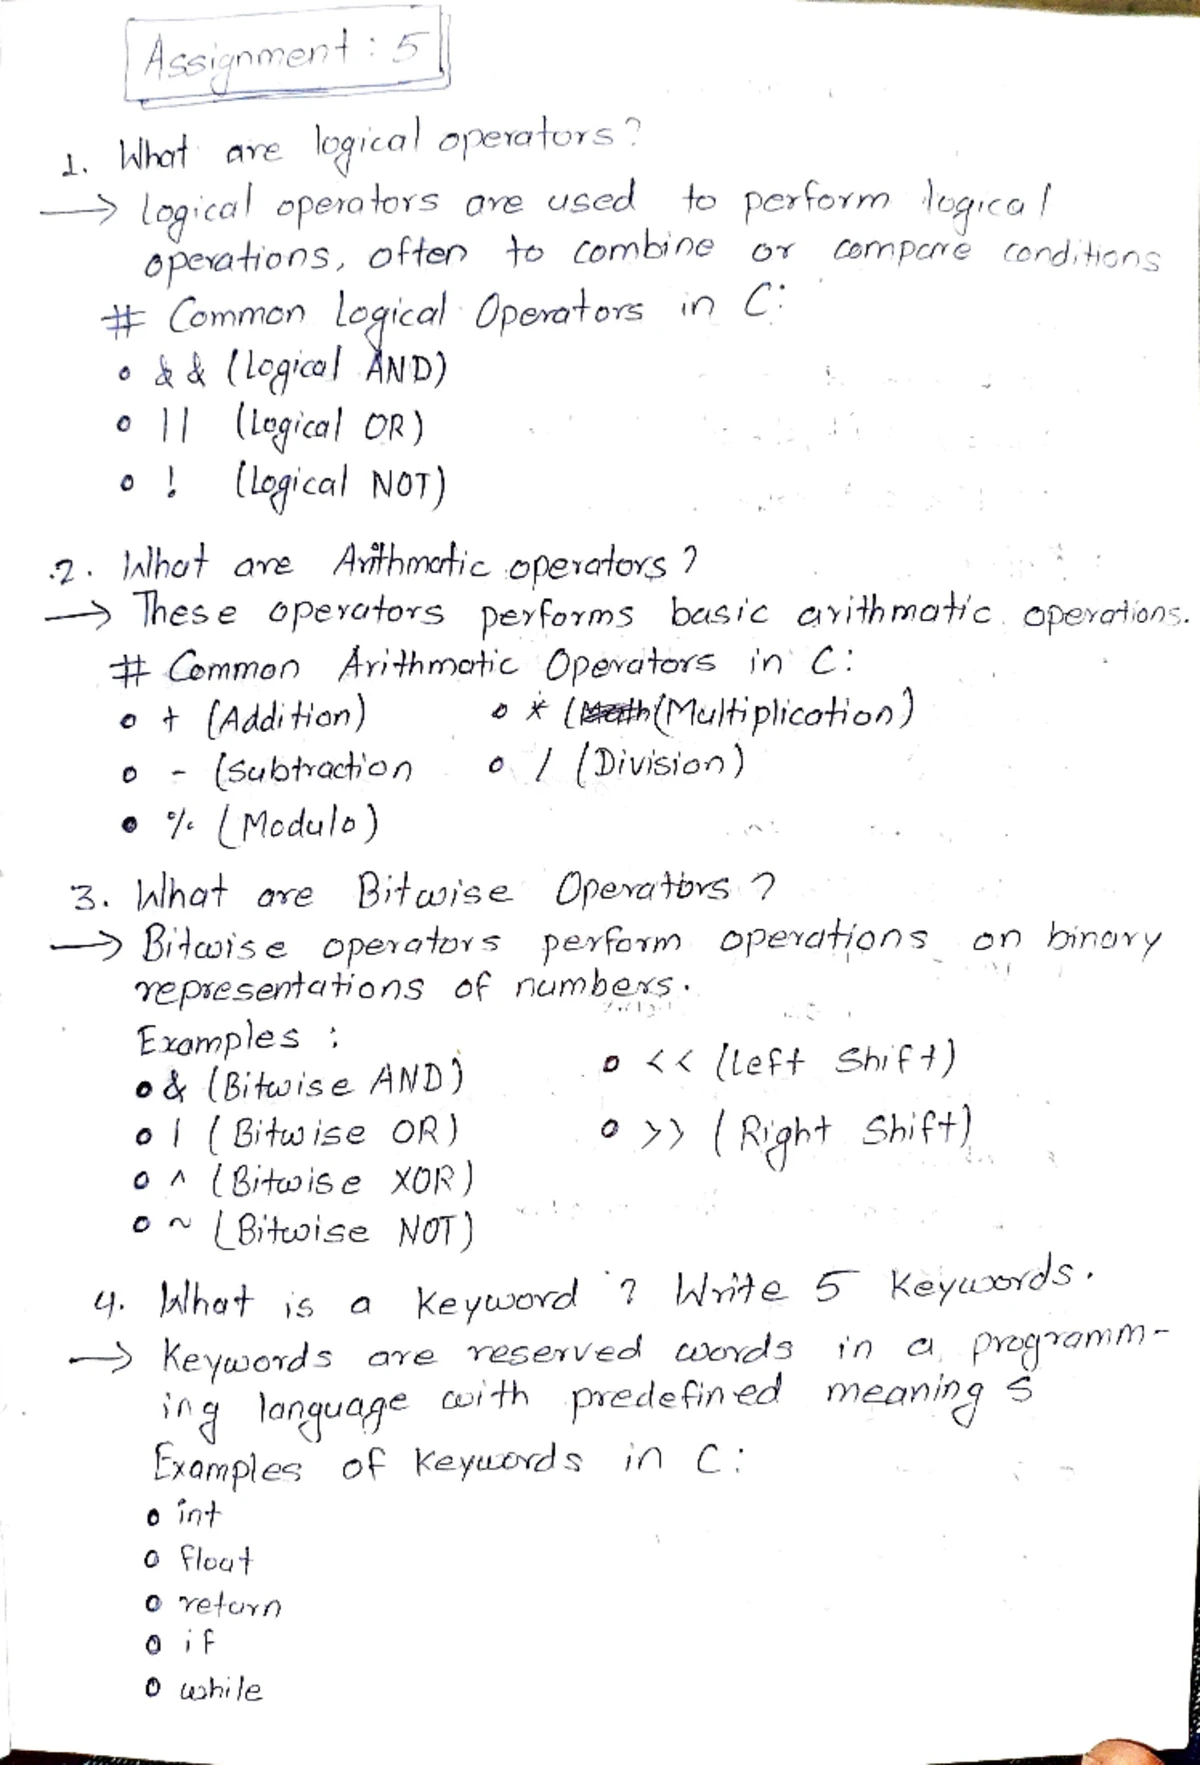 Assignment : 5
1. What are logical operators?
→ Logical operators are used to perform logical
operations, often to combine or compare conditions
# Common Logical Operators in C:
• && (Logical AND)
• || (Logical OR)
• ! (Logical NOT)
2. What are Arithmatic operators?
→ These operators performs basic arithmatic operations.
# Common Arithmatic Operators in C:
• + (Addition) • * (Math (Multiplication)
• - (Subtraction • / (Division)
• % (Modulo)
3. What are Bitwise Operators?
→ Bitwise operators perform operations on binary
representations of numbers.
Examples :
• & (Bitwise AND) • << (Left Shift)
• | (Bitwise OR) • >> (Right Shift)
• ^ (Bitwise XOR)
• ~ (Bitwise NOT)
4. What is a keyword ? Write 5 keywords.
→ Keywords are reserved words in a programm-
ing language with predefined meanings
Examples of keywords in C:
• int
• float
• return
• if
• while